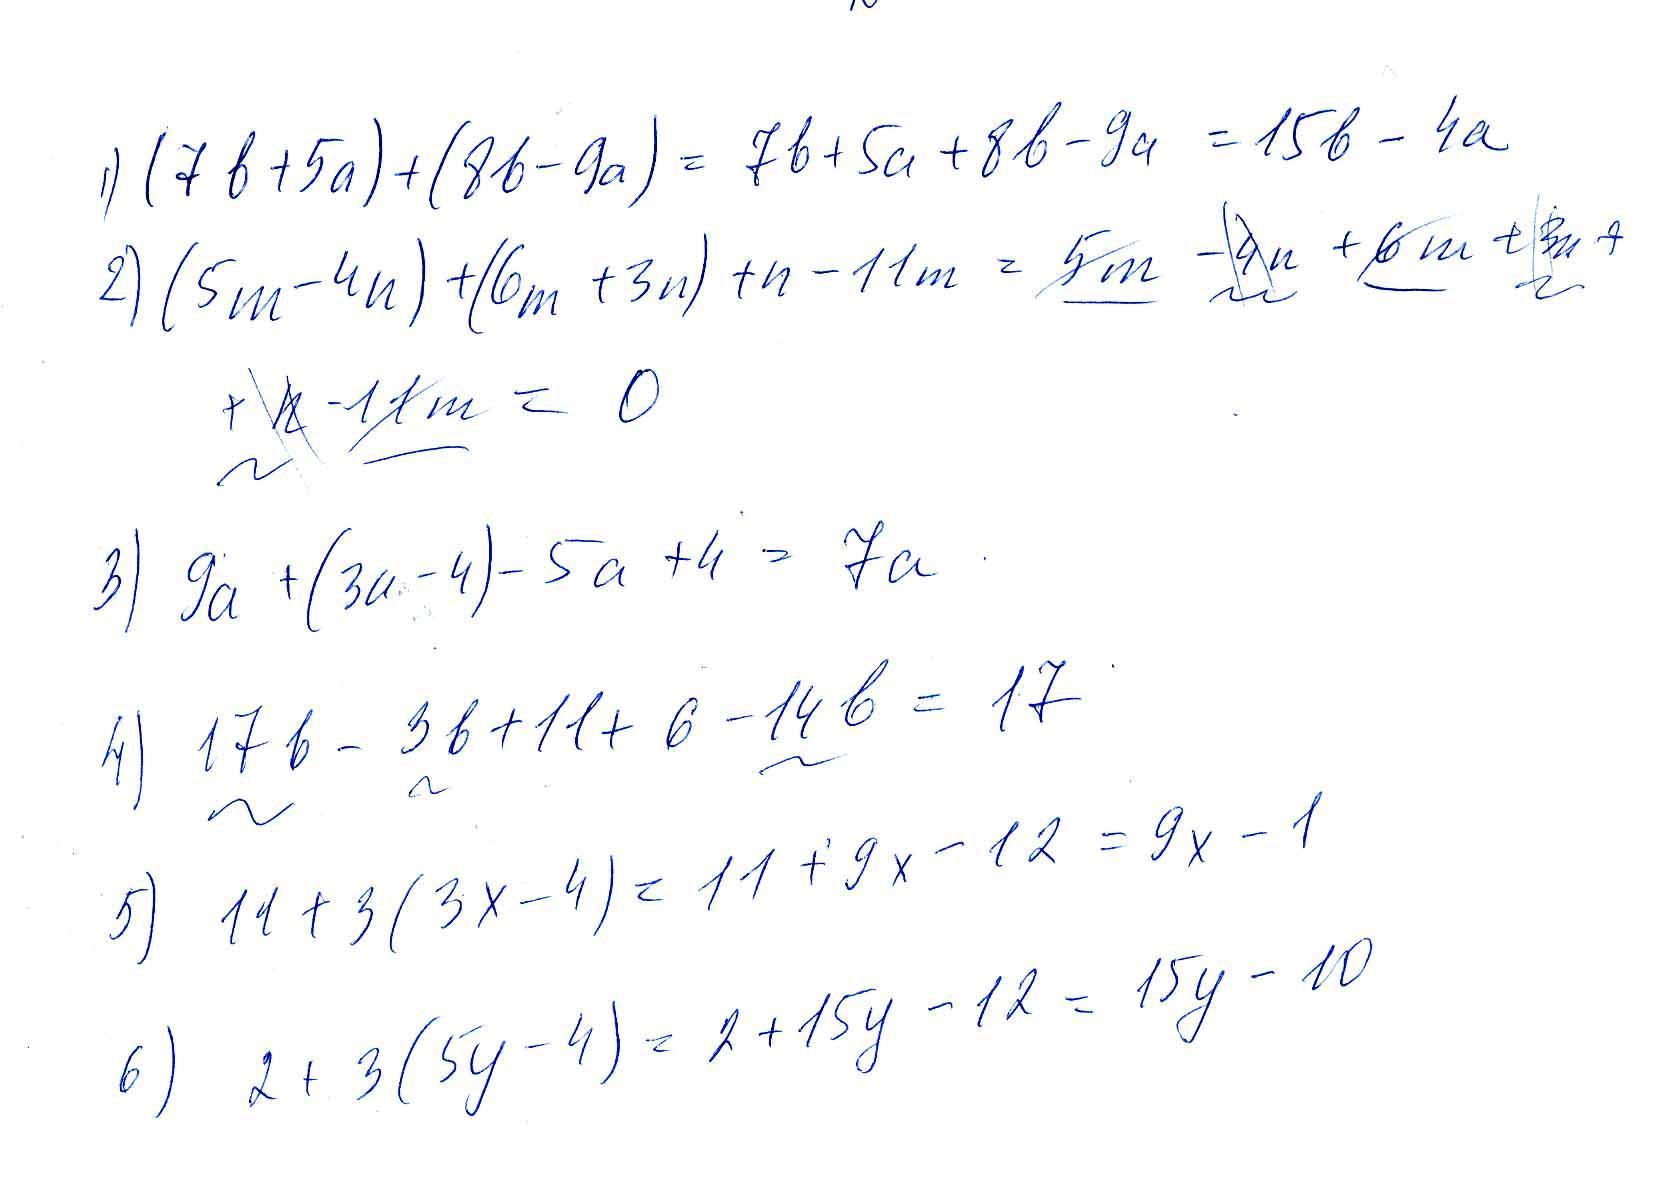 1) (7b+5a)+(8b-9a) = 7b+5a+8b-9a = 15b - 4a
2) (5m-4n)+(6m+3n)+n-11m = 5m - 4n + 6m + 3n +
+ n - 11m = 0
3) 9a +(3a-4)-5a+4 = 7a
4) 17b - 3b+11+6-14b = 17
5) 11+3(3x-4)= 11+9x-12 = 9x-1
6) 2+3(5y-4)= 2+15y-12 = 15y-10